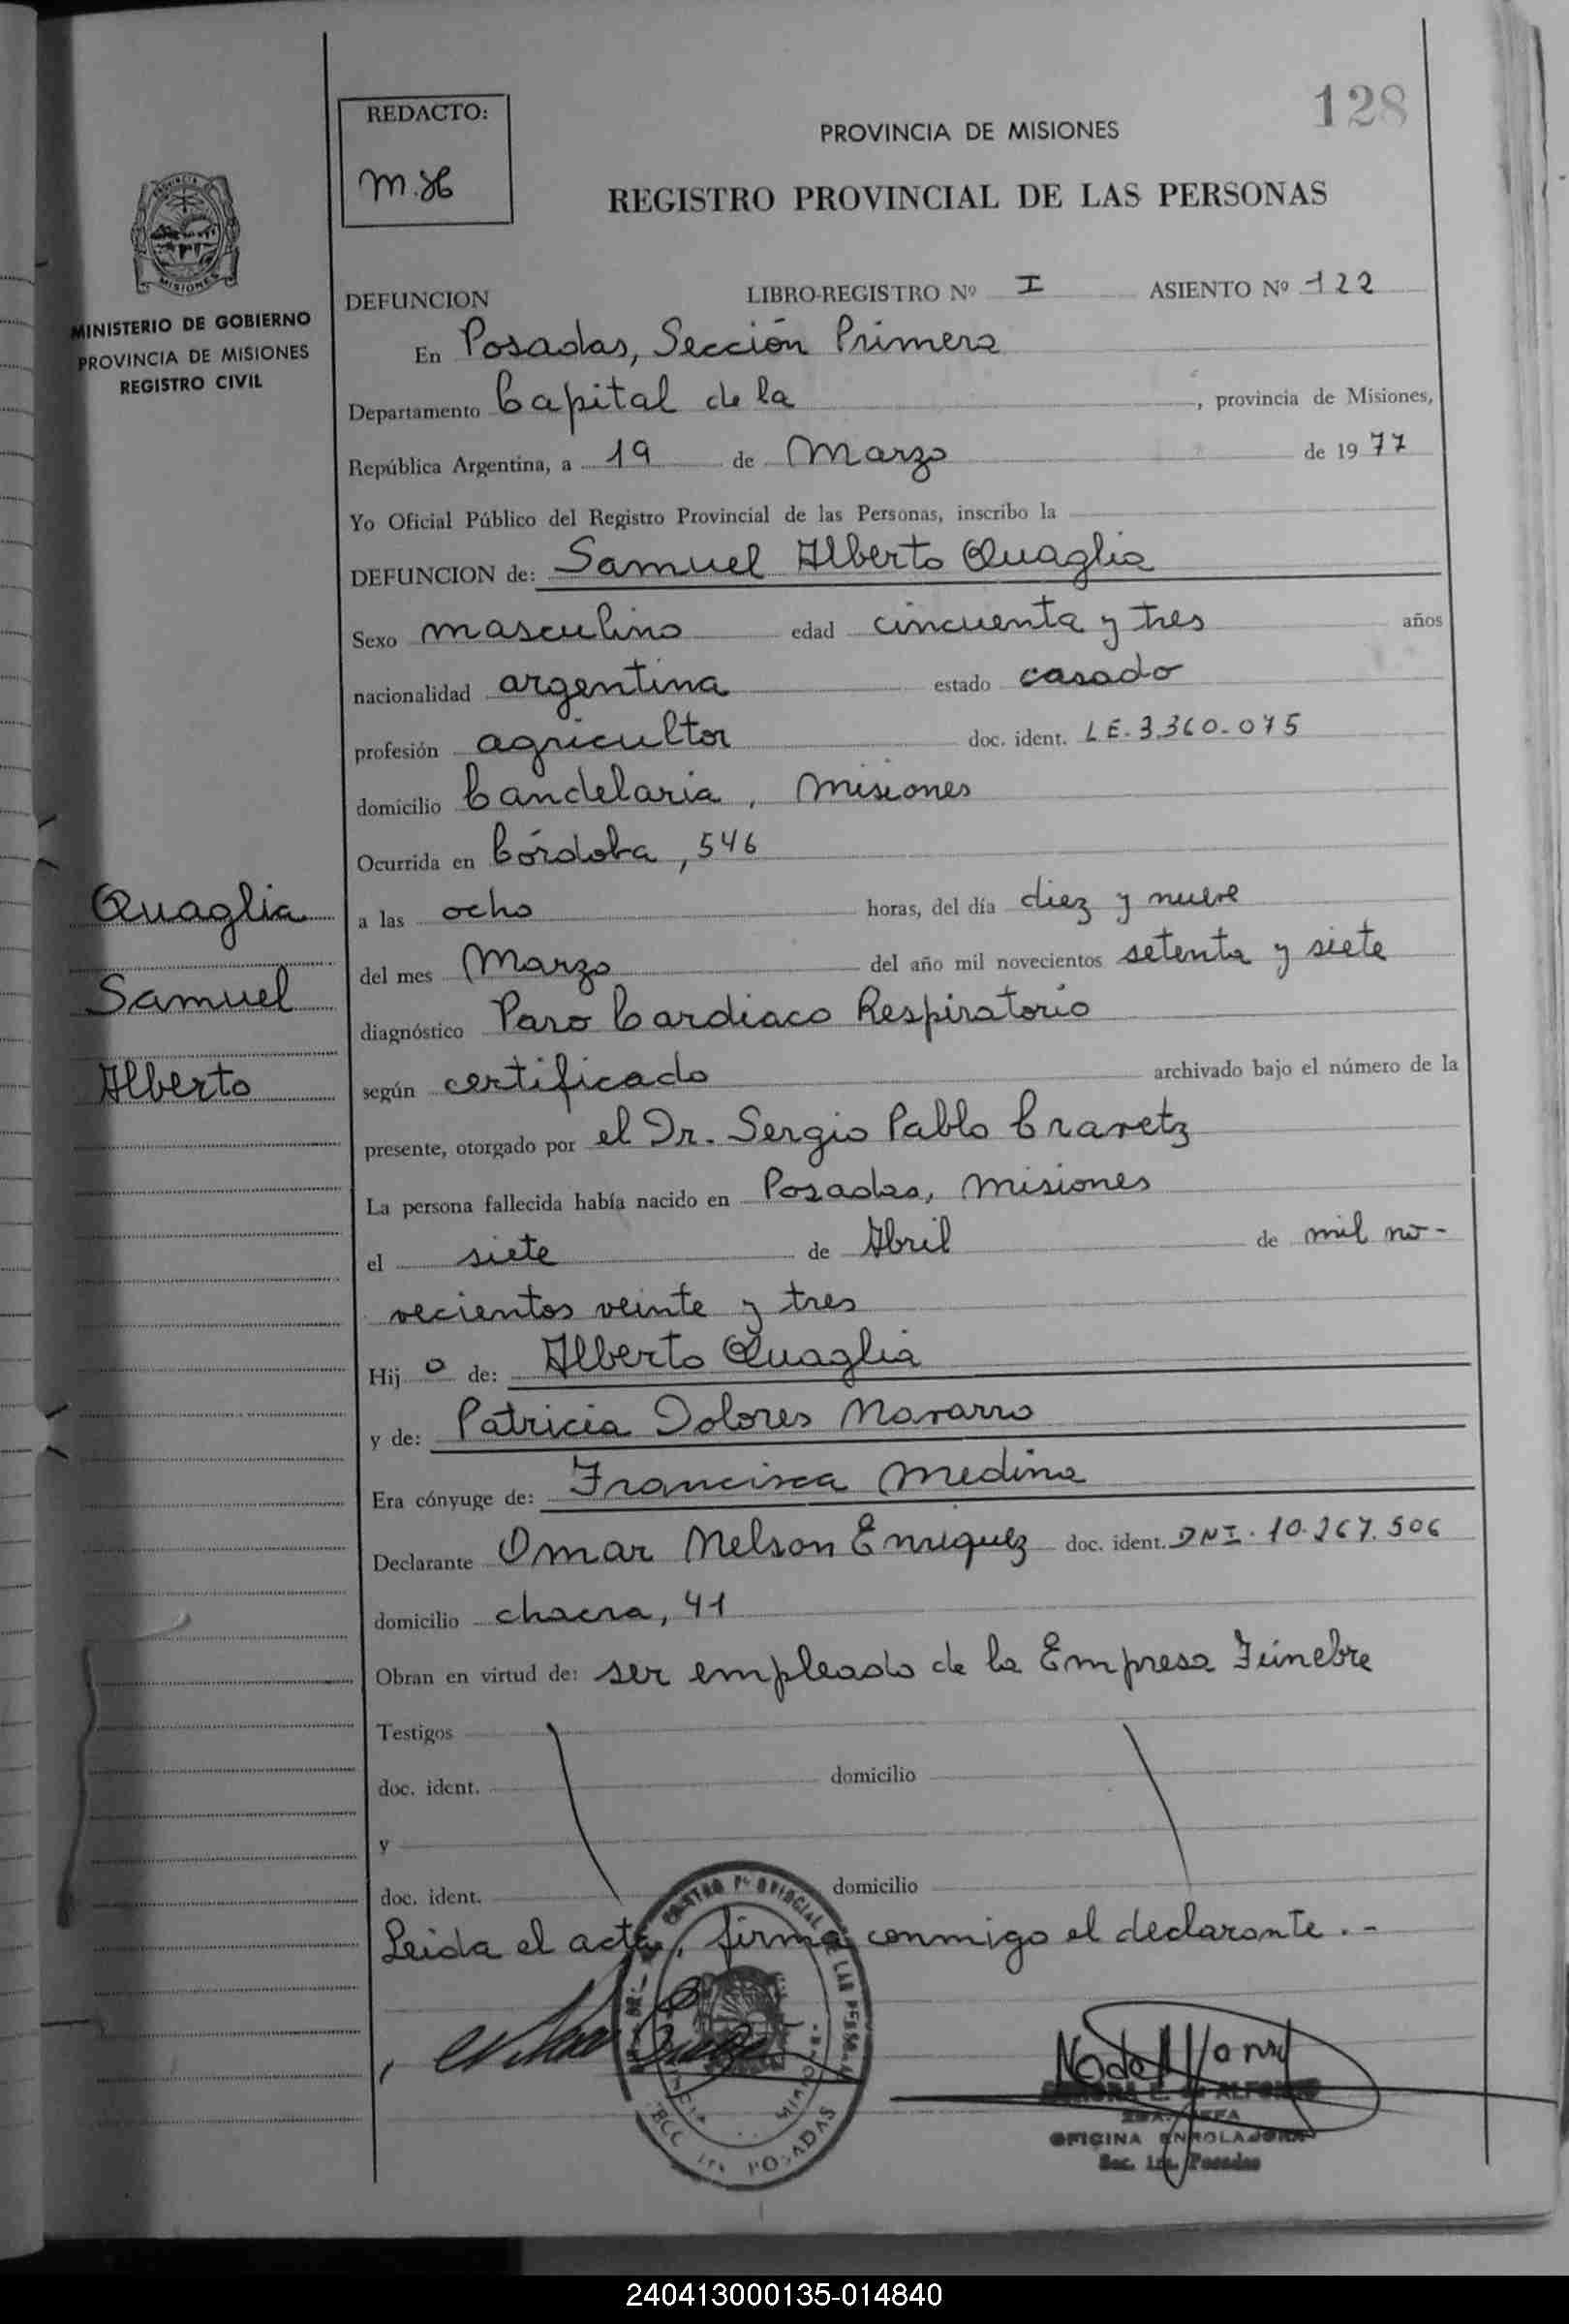 128
REDACTO:
M.H
PROVINCIA DE MISIONES
REGISTRO PROVINCIAL DE LAS PERSONAS
MISIONES
MINISTERIO DE GOBIERNO
PROVINCIA DE MISIONES
REGISTRO CIVIL
DEFUNCION LIBRO-REGISTRO Nº I ASIENTO Nº 122
En Posadas, Sección Primera
Departamento Capital de la, provincia de Misiones,
República Argentina, a 19 de Marzo de 1977
Yo Oficial Público del Registro Provincial de las Personas, inscribo la
DEFUNCION de: Samuel Alberto Quaglia
Sexo masculino edad cincuenta y tres años
nacionalidad argentina estado casado
profesión agricultor doc. ident. LE. 3.360.075
domicilio Candelaria, Misiones
Ocurrida en Córdoba, 546
Quaglia
Samuel
Alberto
a las ocho horas, del día diez y nueve
del mes Marzo del año mil novecientos setenta y siete
diagnóstico Paro Cardiaco Respiratorio
según certificado archivado bajo el número de la
presente, otorgado por el Dr. Sergio Pablo Cravetz
La persona fallecida había nacido en Posadas, Misiones
el siete de Abril de mil no-
vecientos veinte y tres
Hijo de: Alberto Quaglia
y de: Patricia Dolores Navarro
Era cónyuge de: Francisca Medina
Declarante Omar Nelson Enriquez doc. ident. DNI. 10.267.506
domicilio chacra, 41
Obran en virtud de: ser empleado de la Empresa Fúnebre
Testigos
doc. ident. domicilio
y
doc. ident. domicilio
Leida el acta, firma conmigo el declarante.-
POSADAS
OFICINA ENROLADORA
Sec. 1ra. Posadas
240413000135-014840